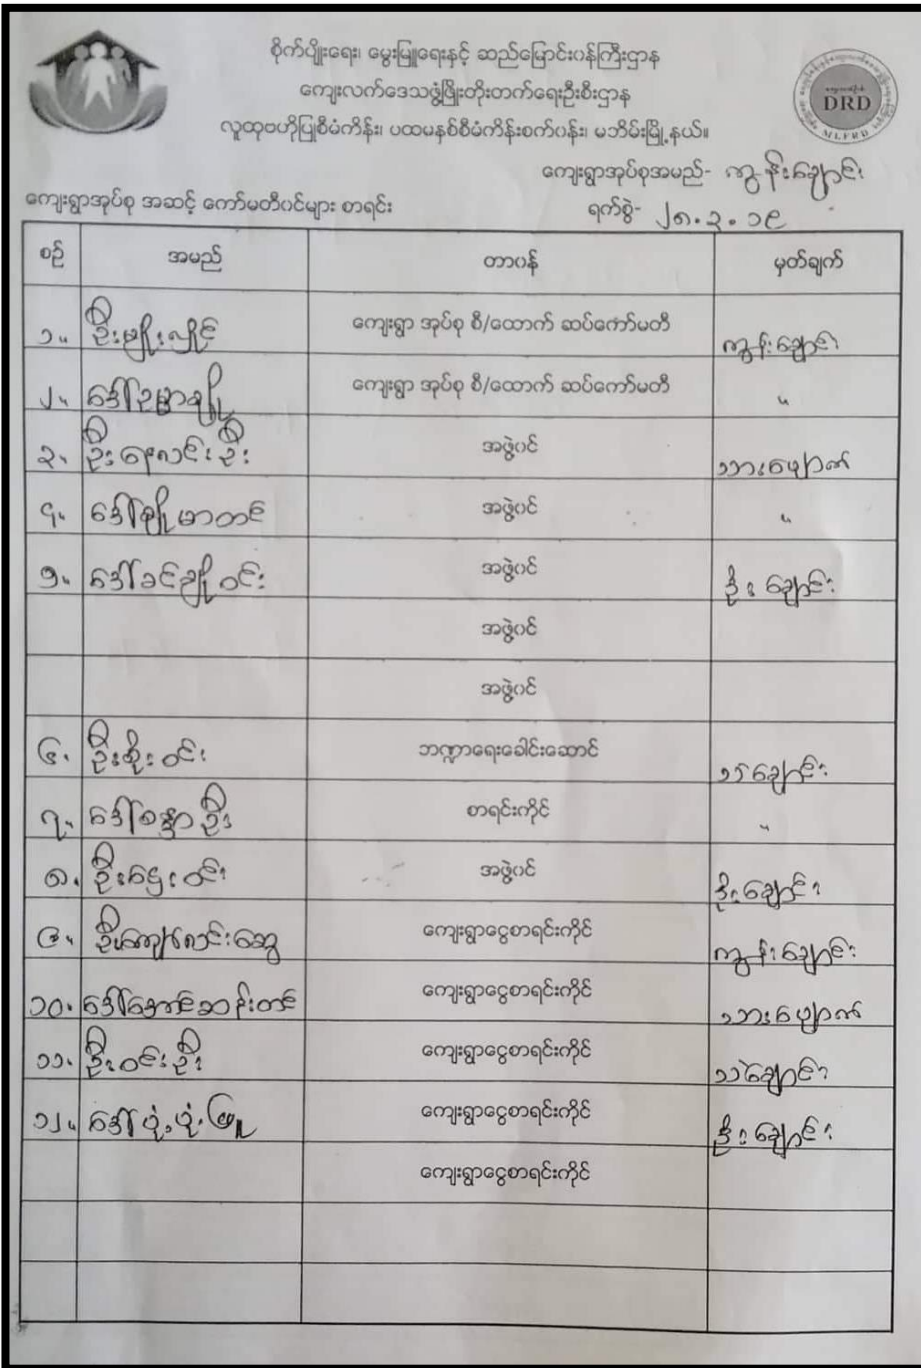 စိုက်ပျိုးရေး၊ မွေးမြူရေးနှင့် ဆည်မြောင်းဝန်ကြီးဌာန
ကျေးလက်ဒေသဖွံ့ဖြိုးတိုးတက်ရေးဦးစီးဌာန
DRD
MLFRD
လူထုဗဟိုပြုစီမံကိန်း၊ ပထမနှစ်စီမံကိန်းစက်ဝန်း၊ မအိမ်းမြို့နယ်။
ကျေးရွာအုပ်စုအမည်- ကျွန်းချောင်း
ကျေးရွာအုပ်စု အဆင့် ကော်မတီဝင်များ စာရင်း ရက်စွဲ- ၂၈.၃.၁၉
စဉ် အမည် တာဝန် မှတ်ချက်
၁။ ဦးမျိုးလှိုင် ကျေးရွာ အုပ်စု စီ/ထောက် ဆပ်ကော်မတီ ကျွန်းချောင်း
၂။ ဒေါ်ဥမ္မာချို ကျေးရွာ အုပ်စု စီ/ထောက် ဆပ်ကော်မတီ "
၃။ ဦးနေလင်းဦး အဖွဲ့ဝင် သားဖျောက်
၄။ ဒေါ်ချိုမာတင် အဖွဲ့ဝင် "
၅။ ဒေါ်ခင်ချိုဝင်း အဖွဲ့ဝင် ဒိုးချောင်း
အဖွဲ့ဝင်
အဖွဲ့ဝင်
၆. ဦးစိုးဝင်း ဘဏ္ဍာရေးခေါင်းဆောင် သဲချောင်း
၇. ဒေါ်စန္ဒာဦး စာရင်းကိုင် "
၈. ဦးဌေးဝင်း အဖွဲ့ဝင် ဒိုးချောင်း
၉. ဦးကျော်လင်းဆွေ ကျေးရွာငွေစာရင်းကိုင် ကျွန်းချောင်း
၁၀. ဒေါ်အောင်ဆန်းတင် ကျေးရွာငွေစာရင်းကိုင် သားဖျောက်
၁၁. ဦးဝင်းဦး ကျေးရွာငွေစာရင်းကိုင် သဲချောင်း
၁၂။ ဒေါ်ပုံ့ပုံ့ဖြူ ကျေးရွာငွေစာရင်းကိုင် ဒိုးချောင်း
ကျေးရွာငွေစာရင်းကိုင်